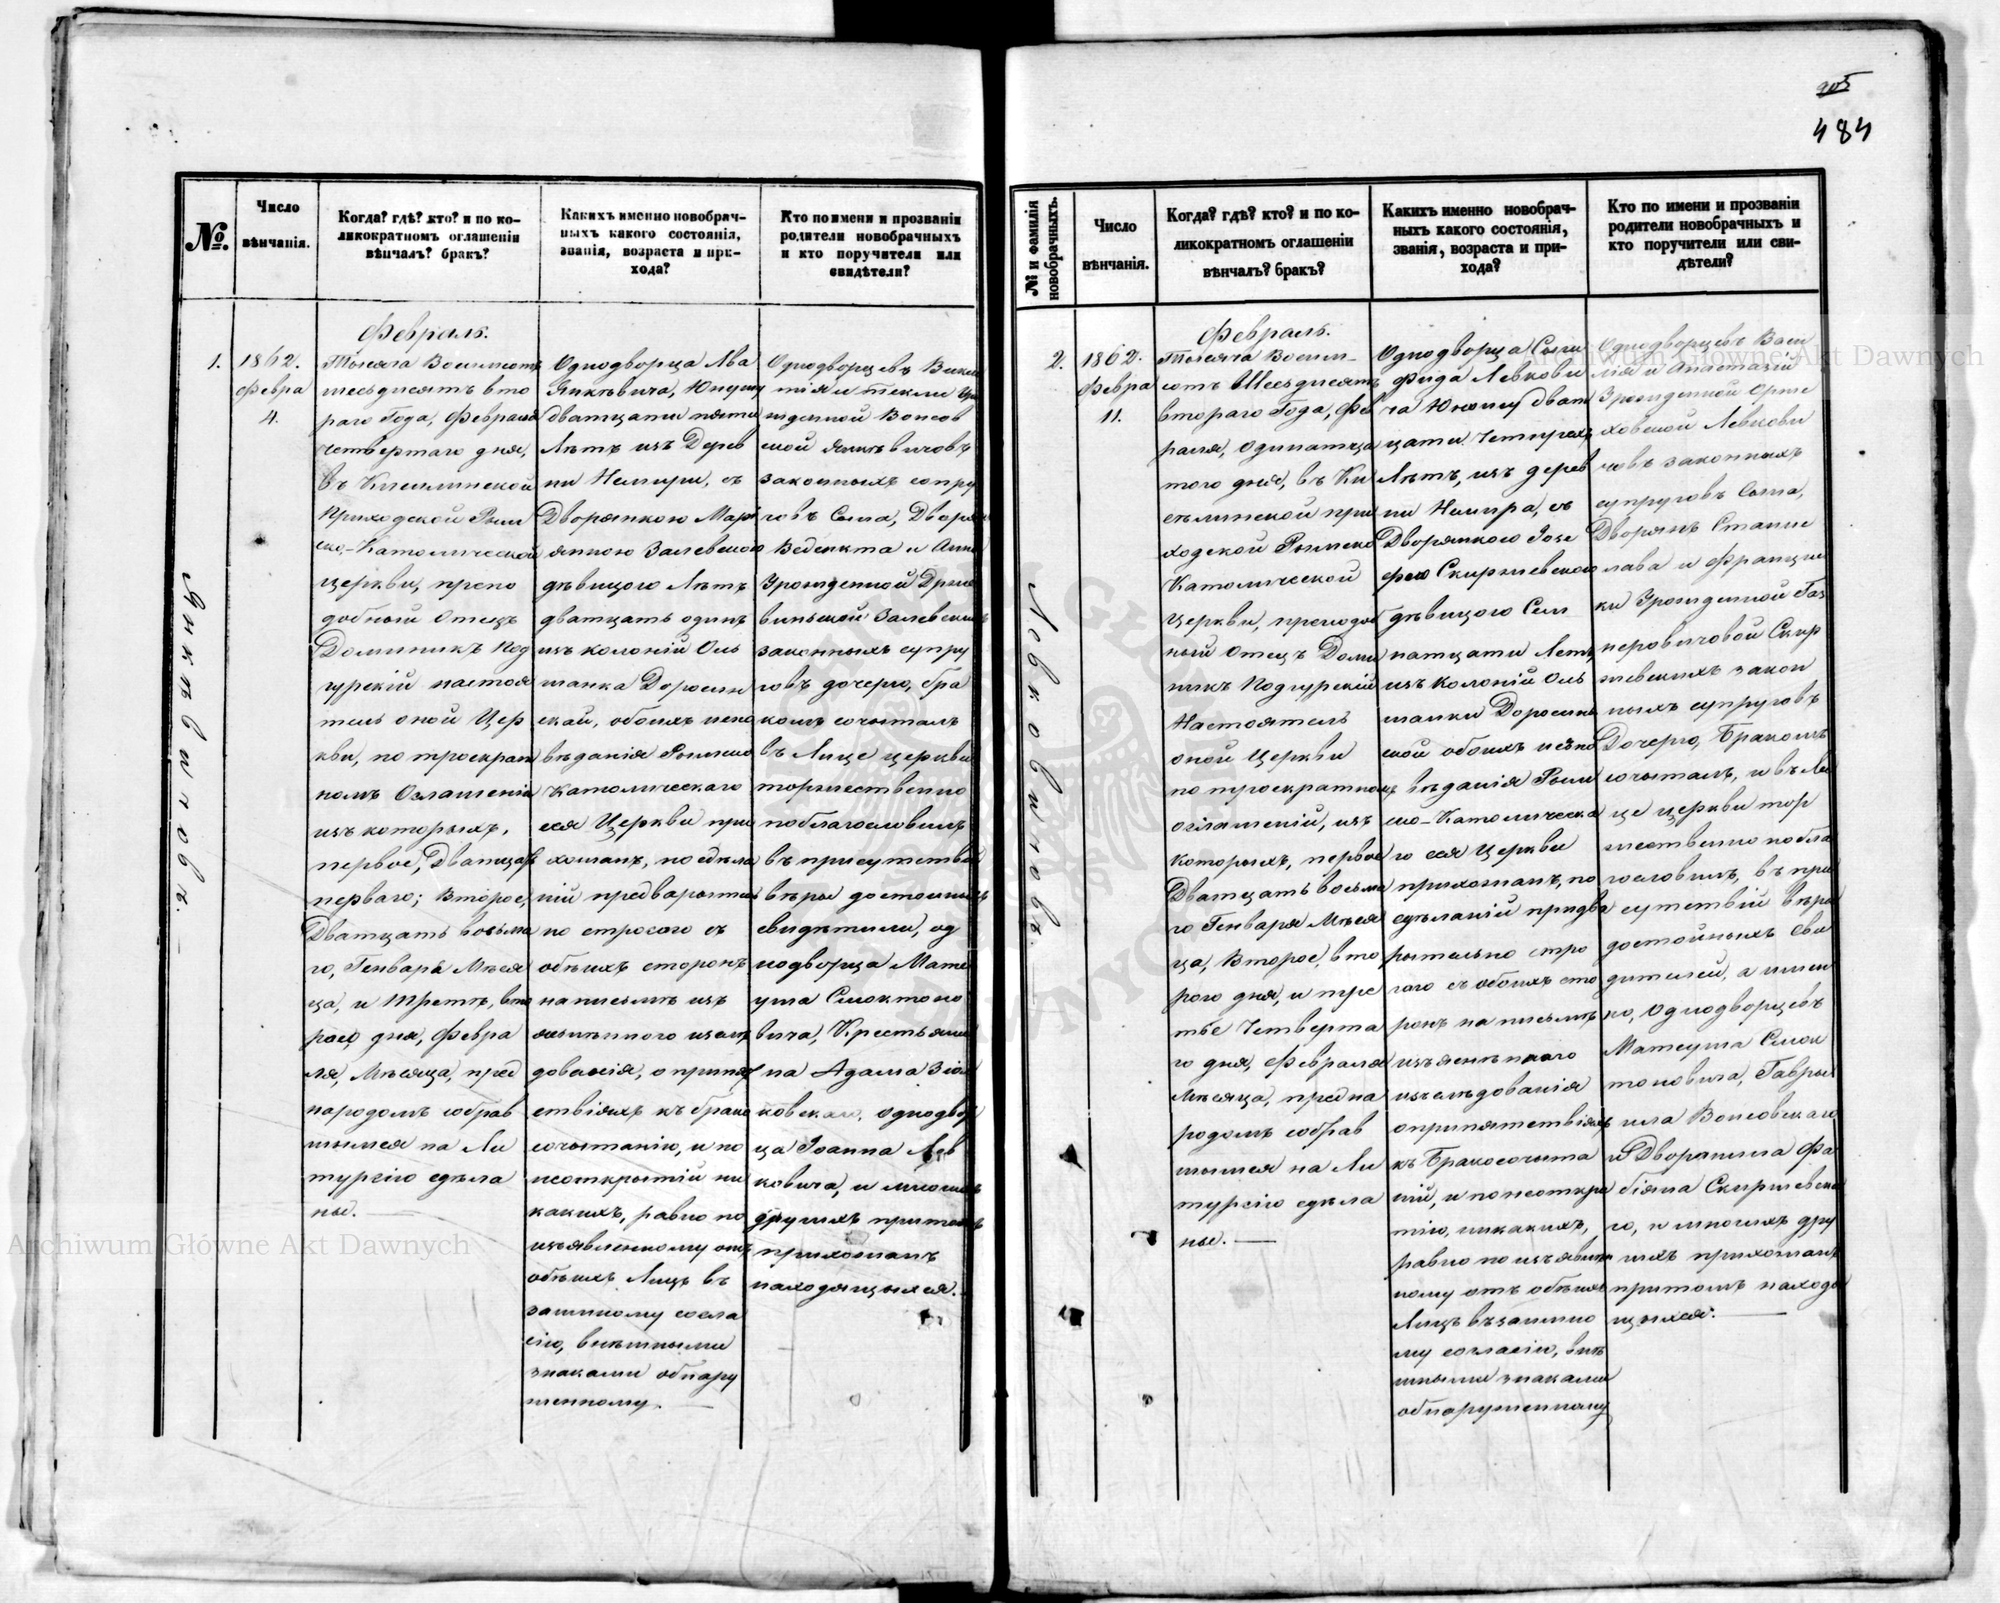 905
484
№.
Число
вѣнчанія.
Когда? гдѣ? кто? и по ко-
ликократномъ оглашеніи
вѣнчалъ? бракъ?
Какихъ именно новобрач-
ныхъ какого состоянія,
званія, возраста и при-
хода?
Кто по имени и прозванію
родители новобрачныхъ
и кто поручители или
свидѣтели?
Янкѣвичовъ.
1.
1862.
Февра
4.
Февраль.
Тысяча Восемсотъ
шесьдисятъ вто
раго Года, Февраля
четвертаго дня,
въ Киселинской
Приходской Рим
ско-Католической
Церкви, препо
добный Отецъ
Доминикъ Под
гурскій настоя
тель оной Цер
кви, по троекрат
номъ Оглашеніи
изъ которыхъ,
первое, Дватцать
перваго; Второе,
Дватцать восьма
го, Генваря Мѣся
ца, и Третъе, вто
раго дня, Февра
ля, Мѣсяца, пред
народомъ собрав
шымся на Ли
тургію сдѣла
ны.
Однодворца Ива
Янкѣвича, Юношу
дватцати пяти
Лѣтъ изъ Дерев
ни Немиры, съ
Дворянкою Мар
янною Залевскою
дѣвицою Лѣтъ
дватцать одинъ
изъ колоній Оль
шанка Доросин
ской, обоихъ испо
вѣданія Римско
Католическаго
сея Церкви при
хожанъ, по сдѣла
ній предварытель
но строгого съ
обѣихъ сторонъ
написьмѣ изъ
яснѣнного изслѣ
дованія, о припят
ствіяхъ къ брако
сочытанію, и по
неоткрытій ни
какихъ, равно по
изъявленному отъ
обѣихъ Лицъ въ
заимному согла
сію, внѣшными
знаками обнару
женному.
Однодворцевъ Викен
тія и Теклы Уро
жденной Вонсов
ской Янкѣвичовъ
законныхъ супру
говъ Сына, Дворян
Бедыкта и Анны
Урожденной Држе
винской Залевскихъ
законныхъ супру
говъ дочерю, бра
комъ сочыталъ
въ Лице церкви
торжественно
поблагословилъ
въ присутствіи
вѣры достойныхъ
свидѣтили, од
нодворца Мате
уша Смоктоно
вича, Крестьяни
на Адама Зіол
ковскаго, однодвор
ца Іоанна Лев
ковича, и многихъ
другихъ притомъ
прихожанъ
находящыхся.
№ и фамилія
новобрачныхъ.
Число
вѣнчанія.
Когда? гдѣ? кто? и по ко-
ликократномъ оглашеніи
вѣнчалъ? бракъ?
Какихъ именно новобрач-
ныхъ какого состоянія,
званія, возраста и при-
хода?
Кто по имени и прозванію
родители новобрачныхъ и
кто поручители или сви-
дѣтели?
Левковичовъ.
2.
1862.
Февра
11.
Февраль.
Тысяча Восем-
сотъ Шесьдисятъ
втораго Года, Фев
раля, одинатца
того дня, въ Ки
сѣлинской при
ходской Римско
Католической
Церкви, преподоб
ный Отецъ Доми
никъ Подгурскій
Настоятель
оной Церкви
по троекратномъ
оглашеній, изъ
которыхъ, первое
Дватцать восьма
го Генваря Мѣся
ца, Второе, вто
рого дня, и тре
тье Четверта
го дня, Февраля
Мѣсяца, предна
родомъ собрав
шымся на Ли
тургію сдѣла
ны.
Однодворца Сыги
фрида Левкови
ча Юношу дват
цати Четырехъ
Лѣтъ, изъ дерев
ни Немира, съ
Дворянкою Іозе
фою Скиржевскою
дѣвицою Сем
натцати Летъ
изъ Колоній Оль
шанки Доросинь
ской обоихъ испо
вѣданія Рим
ско-Католическа
го сея Церкви
прихожанъ, по
сдѣланій предва
рытельно стро
гого съ обоихъ сто
ронъ на письмѣ
изъяснѣнного
изслѣдованія
о припятствіяхъ
къ Бракосочыта
нію, и по неоткры
тію, никакихъ,
равно по изъявлен
ному отъ обѣихъ
Лицъ въ заимно
му согласію, внѣ
шными знаками
обнаруженному
Однодворцевъ Васи
лія и Анастазіи
Урожденной Орже
ховской Левкови
човъ законныхъ
супруговъ Сына,
Дворянъ Станис
лава и Францис
ки Урожденной Гас
перовичовой Скир
жевскихъ закон
ныхъ супруговъ
Дочерю, Бракомъ
сочыталъ, и въ Ли
це церкви тор
жественно побла
гословилъ, въ при
сутствій вѣры
достойныхъ Сви
дителей, а имен
но, Однодворцевъ
Матеуша Смок
тоновича, Гаврыи
ила Вонсовскаго
и Дворянина Фа
біяна Скиржевска
го, и многихъ дру
гихъ прихожанъ
притомъ находя
щыхся.
Archiwum Główne Akt Dawnych
Archiwum Główne Akt Dawnych